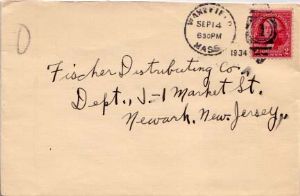 WAKEFIELD
SEP 14
6 30 PM
1934
MASS.
Fischer Distributing Co.
Dept., J-1 Market St.
Newark, New Jersey.